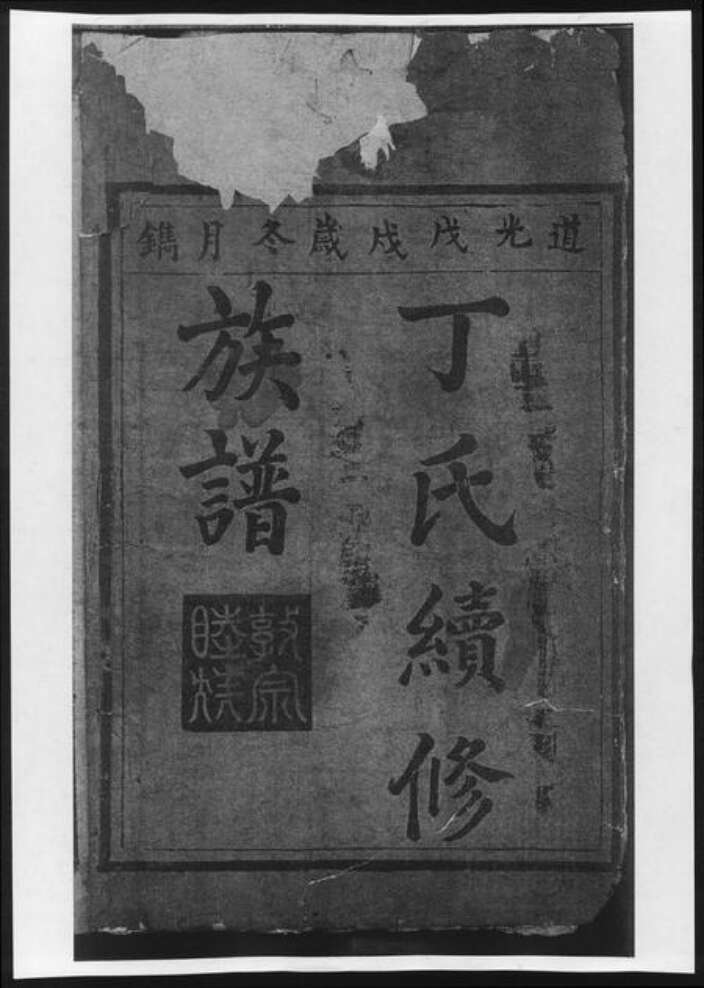 道光戊戌歲冬月鐫
丁氏續修
族譜
敦宗
睦族